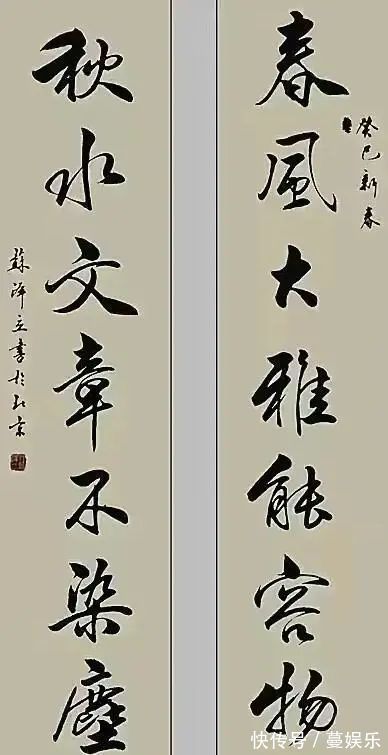 癸巳新春
春風大雅能容物
秋水文章不染塵
蘇澤立書於北京
快传号 / 蔓娱乐